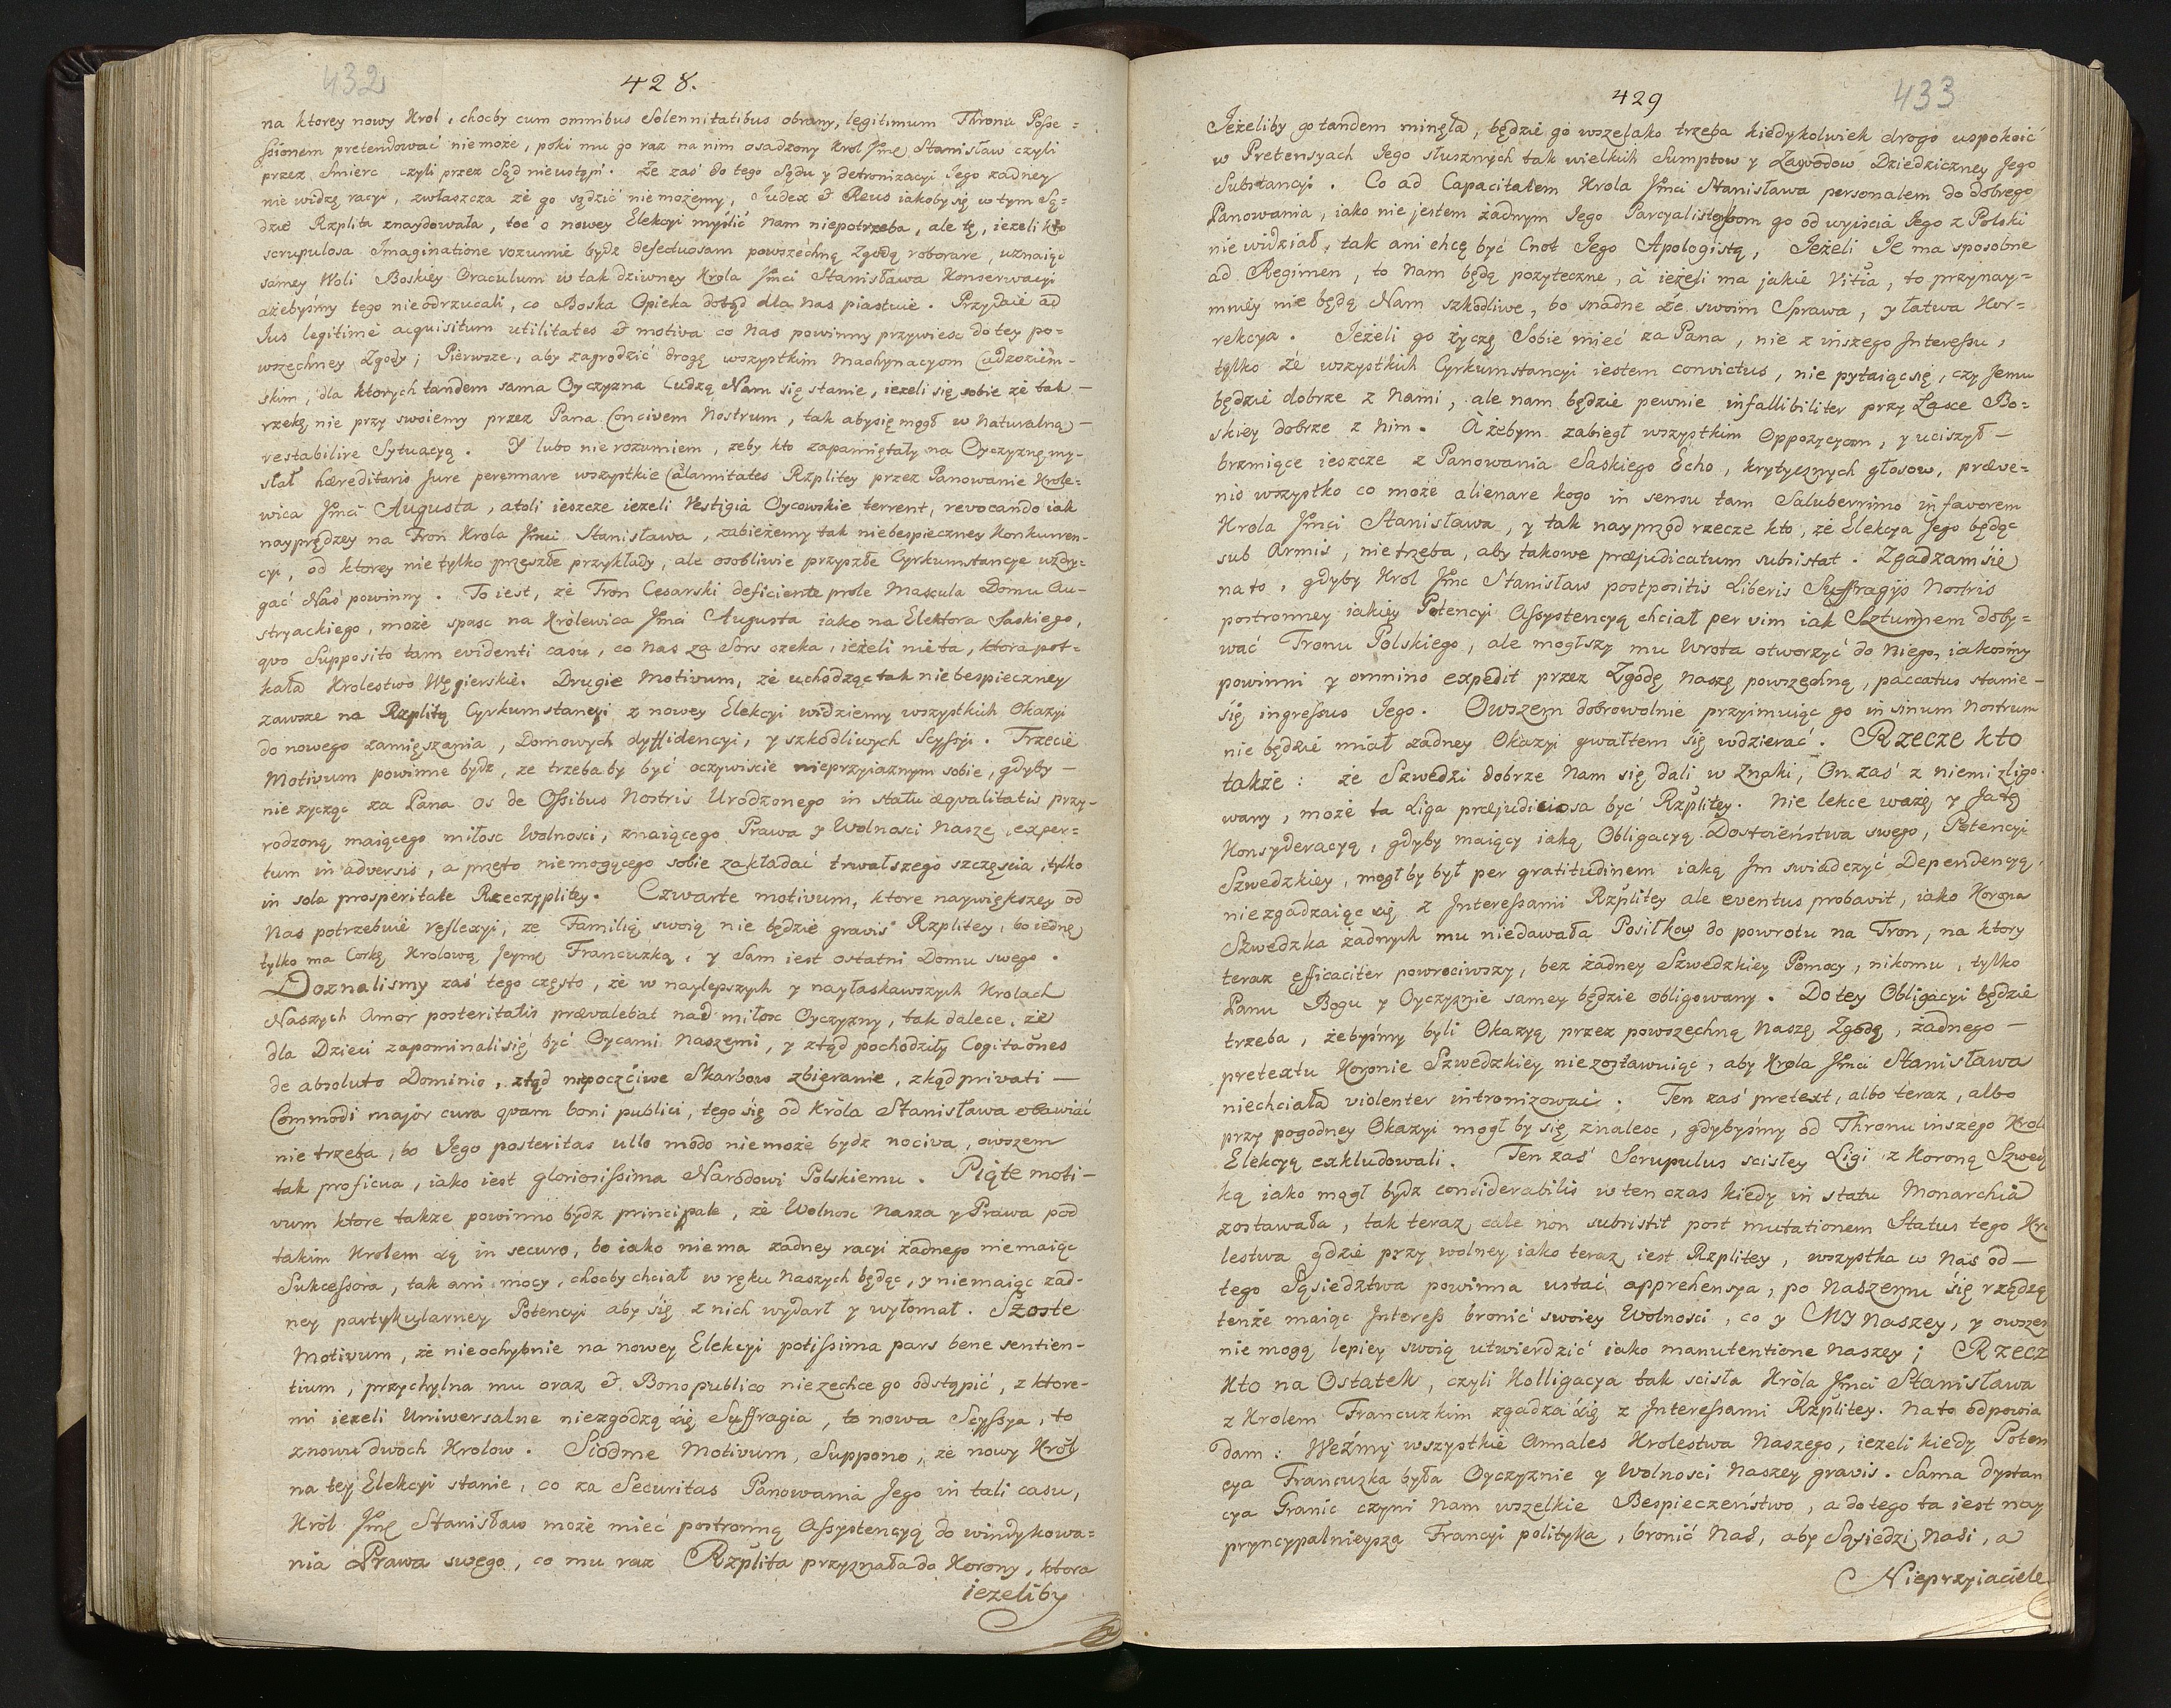 432
428.
na ktorey nowy Krol, chocby cum omnibus Solennitatibus obrany, legitimum Thronu Posse=
ssionem pretendować niemoże, poki mu go raz na nim osadzony Krol Jmę Stanisław czyli
przez Smierc, czyli przez Sąd nieustąpi. Że zaś do tego Sądu y detronizacyi Jego zadney
nie widzę racyi, zwłaszcza że go sądzić niemożemy, Judex & Reus iakoby się w tym Są=
dzie Rzplita znaydowała, toć o nowey Elekcyi myślić nam niepotrzeba, ale tę, ieżeli kto
scrupulosa Imaginatione rozumie bydz defectuosam powszechną Zgodą roborare, uznaiąc
samey Woli Boskiey Oraculum w tak dziwney Krola Jmci Stanisława Konserwacyi
ażebyśmy tego nieodrzucali, co Boska Opieka dotąd dla nas piastuie. Przydaię ad
Jus legitimè acquisitum utilitates & motiva co nas powinny przywiesc do tey po=
wszechney Zgody; Pierwsze, aby zagrodzić drogę wszystkim Machynacyom Cudzoziem-
skim, dla ktorych tandem sama Oyczyzna Cudzą Nam się stanie, ieżeli się sobie że tak—
rzekę nie przy swoiemy przez Pana Concivem Nostrum, tak abysię mogł w Naturalną—
restabilire Sytuacyą. Y lubo nie rozumiem, żeby kto zapamiętały na Oyczyznę my-
slał hæreditario Jure perennare wszystkie Calamitates Rzplitey przez Panowanie Krole=
wica Jmci Augusta, atoli ieszcze ieżeli Vestigia Oycowskie terrent, revocando iak
nayprędzey na Tron Krola Jmci Stanisława, zabieżemy tak niebespieczney Konkurren-
cyi, od ktorey nie tylko przeszłe przykłady, ale osobliwie przyszłe Cyrkumstancye wzdry=
gać Nas powinny. To iest, że Tron Cesarski deficiente prole Mascula Domu Au-
stryackiego, może spasc na Krolewica Jmci Augusta iako na Elektora Saskiego,
qvo Supposito tam evidenti casu, co nas za Sors czeka, ieżeli nie ta, ktora pot=
kała Krolestwo Węgierskie. Drugie Motivum, że uchodząc tak niebespieczney
zawsze na Rzplitą Cyrkumstancyi z nowey Elekcyi widziemy wszystkich Okazyi
do nowego zamięszania, Domowych dyffidencyi, y szkodliwych Scyssyi. Trzecie
Motivum powinne bydz, ze trzeba by być oczywiscie nieprzyiaznym sobie, gdyby—
nie zycząc za Pana os de Ossibus Nostris Urodzonego in statu æqvalitatis przy-
rodzoną maiącego miłosc Wolnosci, znaiącego Prawa y Wolnosci Nasze, exper=
tum in adversis, a przeto niemogącego sobie zakładać trwałszego szczęscia, tylko
in sola prosperitate Rzeczyplitey. Czwarte motivum, ktore naywiększey od
Nas potrzebuie reflexyi, ze Familią swoią nie będzie gravis Rzplitey, bo iednę
tylko ma Corkę Krolową Jeymę Francuzką, y Sam iest ostatni Domu swego.
Doznalismy zaś tego często, że w naylepszych y nayłaskawszych Krolach
Naszych Amor posteritatis prævalebat nad miłosc Oyczyzny, tak dalece, że
dla Dzieci zapominali się być Oycami Naszemi, y ztąd pochodziły Cogitaōnes
de absoluto Dominio, ztąd niepoczćiwe Skarbow zbieranie, zkąd privati—
Commodi major cura qvam boni publici, tego się od Króla Stanisława obawiać
nie trzeba, bo Jego posteritas ullo modo niemoże bydz nociva, owszem
tak proficua, iako iest gloriosissima Narodowi Polskiemu. Piąte moti-
vum ktore takze powinno bydz principale, że Wolnosc nasza y Prawa pod
takim Krolem są in securo, bo iako niema zadney racyi żadnego niemaiąc
Sukcessora, tak ani mocy, chocby chciał w ręku naszych będąc, y niemaiąc zad-
ney partykularney Potencyi aby się z nich wydarł y wyłomał. Szoste
Motivum, że nieochybnie na nowey Elekcyi potissima pars bene sentien-
tium, przychylna mu oraz &. Bonopublico niezechce go odstąpić, z ktore-
mi ieżeli Uniwersalne niezgodzą się Suffragia, to nowa Scyssya, to
znowu dwoch Krolow. Siodme Motivum, Suppono, że nowy Król
na tey Elekcyi stanie, co za Securitas Panowania Jego in tali casu,
Król Jmę Stanisław może mieć postronną Assystencyą do windykowa=
nia Prawa swego, co mu raz Rzplita przyznała do Korony, ktora
ieżeliby
429
433
Jeżeliby go tandem minęła, będzie go wszelako trzeba kiedykolwiek drogo uspokoić
w Pretensyach Jego słusznych tak wielkich Sumptow y Zawodow Dziedziczney Jego
Substancyi. Co ad Capacitatem Krola Jmci Stanisława personalem do dobrego
Panowania, iako nie jestem żadnym Jego Parcyalistą bom go od wyiscia Jego z Polski
nie widział, tak ani chcę być Cnot Jego Apologistą, Jeżeli Je ma sposobne
ad Regimen, to Nam będą pozyteczne, à ieżeli ma jakie Vitia, to przynay=
mniey nie będą Nam szkodliwe, bo snadne ze swoim Sprawa, y łatwa Kor=
rekcya. Jeżeli go życzę Sobie mieć za Pana, nie z inszego Interessu,
tylko że wszystkich Cyrkumstancyi iestem convictus, nie pytaiąc się, czy Jemu
będzie dobrze z Nami, ale nam będzie pewnie infallibiliter przy Łasce Bo=
skiey dobrze z nim. Ażebym zabiegł wszystkim Oppozycyom, y uciszył—
brzmiące ieszcze z Panowania Saskiego Echo, krytycznych głosow, præve=
nio wszystko co może alienare kogo in sensu tam Saluberrimo in favorem
Krola Jmci Stanisława, y tak nayprzod rzecze kto, że Elekcya Jego będąc
sub Armis, nie trzeba, aby takowe præjudicatum subsistat. Zgadzam sie
na to, gdyby Krol Jmc Stanisław postpositis Liberis Suffragijs Nostris
postronney iakiey Potencyi Assystencyą chciał per vim iak Szturmem doby=
wać Tronu Polskiego, ale mogłszy mu Wrota otworzyć do niego, iakosmy
powinni y omnino expedit przez Zgodę naszę powszechną, paccatus stanie—
się ingressus Jego. Owszem dobrowolnie przyimuiąc go in sinum Nostrum
nie będzie miał zadney Okazyi gwałtem się wdzierać. Rzecze kto
także: że Szwedzi dobrze Nam się dali w Znaki, On zaś z niemi zligo-
wany, może ta Liga præjudiciosa być Rzplitey. Nie lekce ważę y Ja tę
Konsyderacyą, gdyby maiący iaką Obligacyą Dostoieństwa swego, Potencyi
Szwedzkiey, mogłby był per gratitudinem iaką Im swiadczyć Dependencyą,
niezgadzaiąc się z Interessami Rzplitey ale eventus probavit, iako Korona
Szwedzka żadnych mu niedawała Posiłkow do powrotu na Tron, na ktory
teraz efficaciter powrociwszy, bez żadney Szwedzkiey Pomocy, nikomu, tylko
Panu Bogu y Oyczyznie samey będzie obligowany. Do tey Obligacyi będzie
trzeba, żebyśmy byli Okazyą przez powszechną Naszę Zgodę, żadnego—
pretextu Koronie Szwedzkiey niezostawuiąc, aby Krola Jmci Stanisława
niechciała violenter intronizować. Ten zaś pretext, albo teraz, albo
przy pogodney Okazyi mogł by się znalesc, gdybyśmy od Thronu inszego Krol
Elekcyą exkludowali. Ten zaś Scrupulus scisłey Ligi z Koroną Szwedz
ką iako mogł bydz considerabilis w ten czas kiedy in statu Monarchiæ
zostawała, tak teraz cale non subsistit post mutationem Status tego Kro
lestwa gdzie przy wolney iako teraz iest Rzplitey, wszystka w Nas od—
tego Sąsiedztwa powinna ustać apprehensya, po Naszemu się rządzą
tenże maiąc Interess bronić swoiey Wolnosci, co y My Naszey, y owszem
nie mogą lepiey swoią utwierdzić iako manutentione Naszey; Rzecz
Kto na Ostatek, czyli Kolligacya tak scisła Króla Jmci Stanisława
z Krolem Francuzkim zgadza się z Interessami Rzplitey. Na to odpowia
dam: Weźmy wszystkie Annales Krolestwa Naszego, ieżeli kiedy Poten
cya Francuzka była Oyczyznie y Wolnosci Naszey gravis. Sama dystan
cya Granic czyni Nam wszelkie Bespieczeństwo, a do tego ta iest nay
pryncypalnieysza Francyi polityka, bronić Nas, aby Sąsiedzi Nasi, a
Nieprzyiaciele